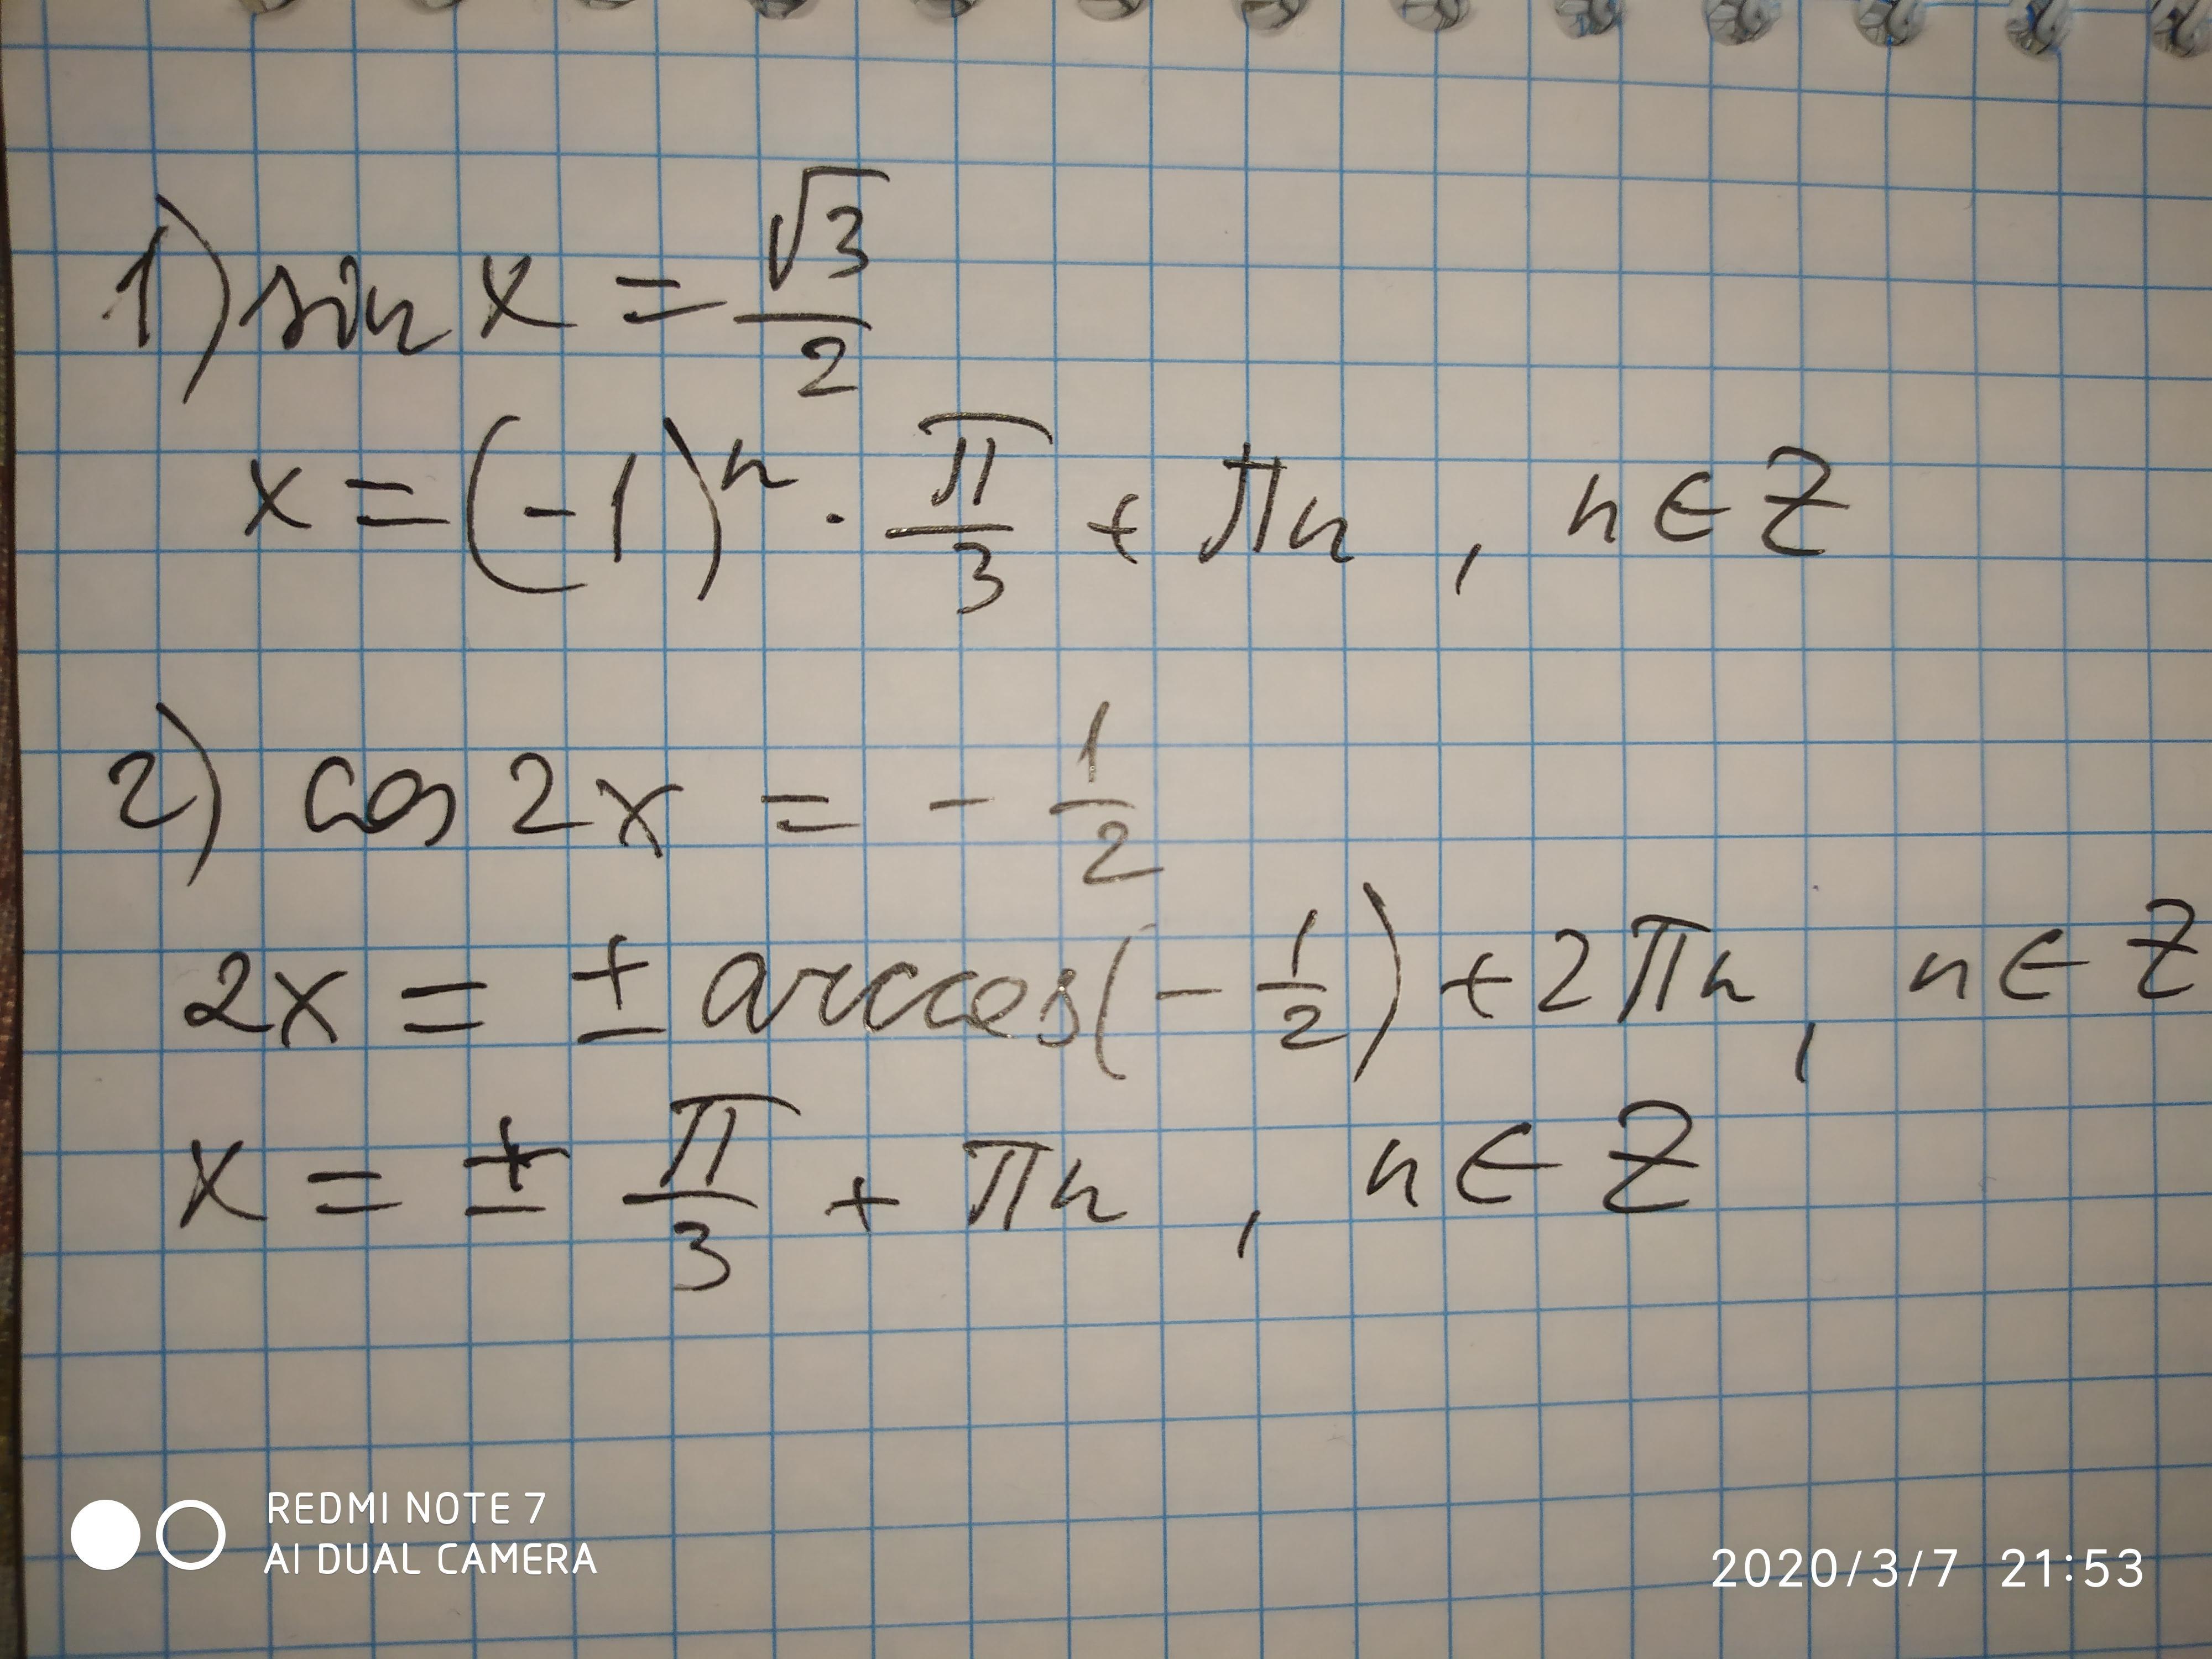 1) sin x = √3/2
x = (-1)ⁿ · π/3 + πn , n ∈ Z
2) cos 2x = - 1/2
2x = ± arccos(- 1/2) + 2πn , n ∈ Z
x = ± π/3 + πn , n ∈ Z
REDMI NOTE 7
AI DUAL CAMERA
2020/3/7 21:53